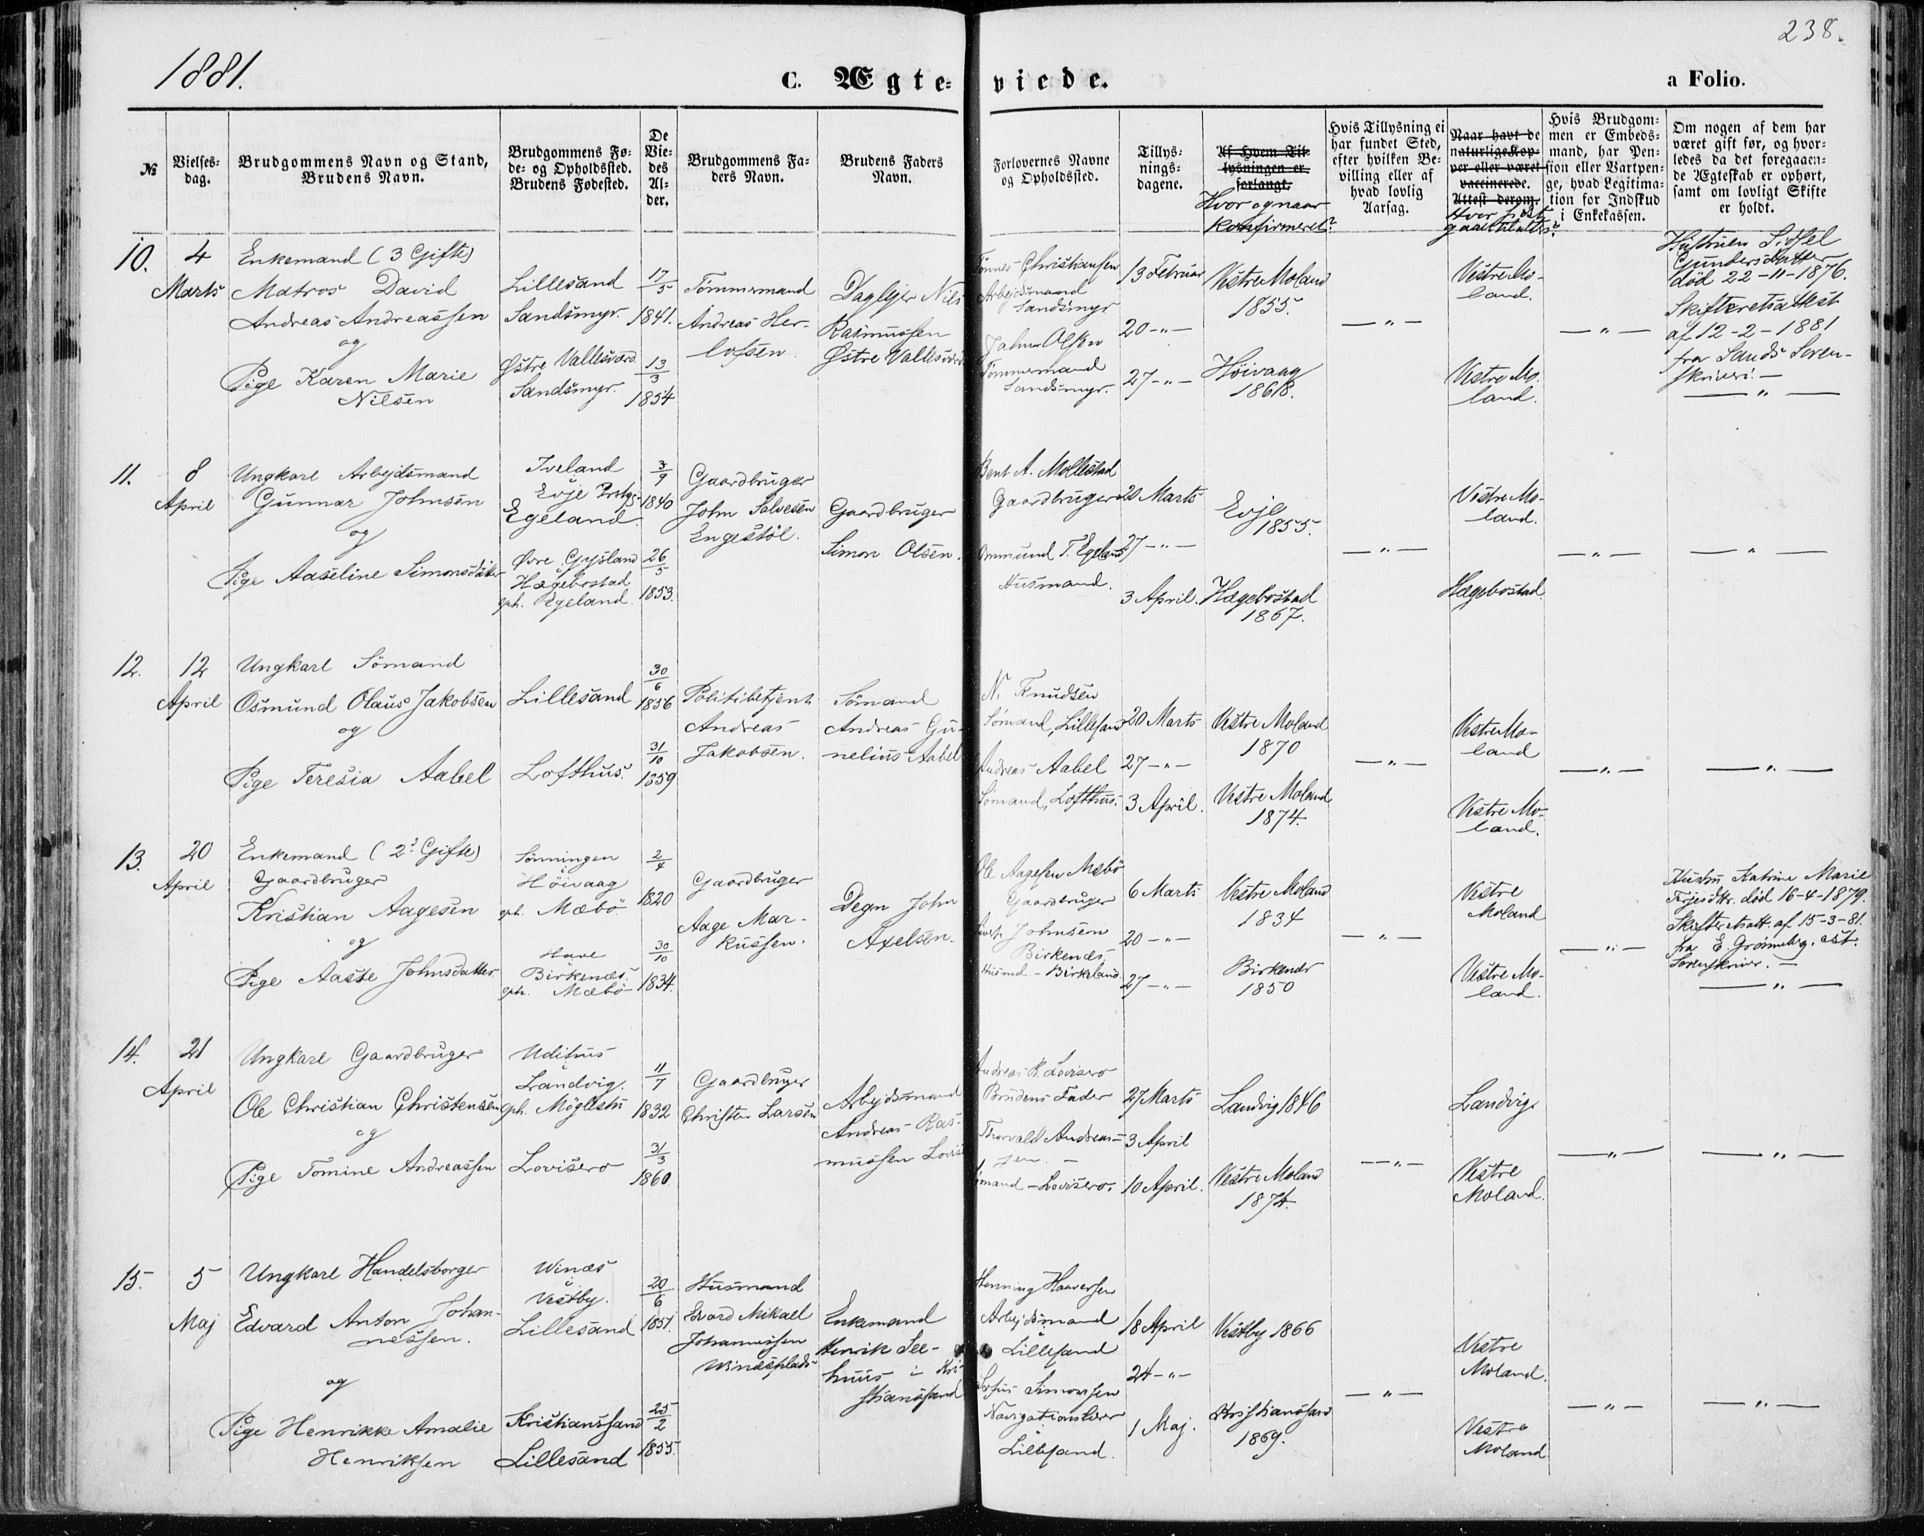 238.
1881.
C. Ægte-viede.
a Folio.
№
Vielses-
dag.
Brudgommens Navn og Stand,
Brudens Navn.
Brudgommens Fø-
de- og Opholdssted.
Brudens Fødested.
De
Vie-
des
Al-
der.
Brudgommens Fa-
ders Navn.
Brudens Faders
Navn.
Forlovernes Navne
og Opholdssted.
Tillys-
nings-
dagene.
Af Hvem Til-
lysningen er
forlangt.
Hvor og naar
konfirmeret?
Hvis Tillysning ei
har fundet Sted,
efter hvilken Be-
villing eller af
hvad lovlig
Aarsag.
Naar havt de
naturlige Kop-
per eller været
vaccinerede.
Attest derom.
Hvis Brudgom-
men er Embeds-
mand, har Pen-
sion eller Vartpen-
ge, hvad Legitima-
tion for Indskud
i Enkekassen.
Om nogen af dem har
været gift før, og hvor-
ledes da det foregaaen-
de Ægteskab er ophørt,
samt om lovligt Skifte
er holdt.
10.
4
Marts
Enkemand (3 Gifte)
Matros David
Andreas Andreassen
og
Pige Karen Marie
Nilsen
Lillesand
Sandsmyr.
Østre Vallesværd
Sandsmyr.
17/5
1841.
13/3
1854
Tømmermand
Andreas Her-
lofsen.
Daglejer Nils
Rasmussen
Østre Vallesværd
Tønnes Christiansen
Arbejdsmand
Sandsmyr
Johan Olsen
Tømmermand
Sandsmyr.
13 Februar
20 -"-
27 -"-
Vestre Moland
1855.
Høivaag
1868.
-"-
Vestre Mo-
land.
Vestre Mo-
land.
-"-
Hustruen Sissel
Gundersdatter
død 22-11-1876.
Skifteretsattest
af 12-2-1881
fra Sands Soren-
skriveri.-
-"-
11.
8
April
Ungkarl Arbejdsmand
Gunnar Johnsen
og
Pige Aaseline Simonsdatter
Iveland
Evje Prstgj.
Egeland
Øvre Gysland
i
Hægebostad
oph. Egeland.
3/9
1840
26/5
1853.
Gaardbruger
John Salvesen
Engestøl.
Gaardbruger
Simon Olsen.
Bent A. Mollestad
Gaardbruger
Ommund T. Egeland
Husmand.
20 Marts
27 -"-
3 April.
Evje
1855.
Hægebostad
1867.
-"-
Vestre Mo-
land.
Hægebostad.
-"-
-"-
12.
12
April
Ungkarl Sømand
Osmund Olaus Jakobsen
og
Pige Teresia Aabel
Lillesand
Lofthus.
30/6
1856
31/10
1859
Politibetjent
Andreas
Jakobsen.
Sømand
Andreas Gu-
nelius Aabel
N. Knudsen
Sømand, Lillesand
Andreas Aabel
Sømand, Lofthus.
20 Marts
27 -"-
3 April.
Vestre Moland
1870
Vestre Moland
1874.
-"-
Vestre Mo-
land
Vestre Mo-
land.
-"-
-"-
13.
20
April
Enkemand (2' Gifte)
Gaardbruger
Kristian Aagesen
og
Pige Aaste Johnsdatter
Sønningen
i
Høivaag
oph. Mæbø
Have
i
Birkenæs.
oph. Mæbø
2/4
1820
30/10
1834.
Gaardbruger
Aage Mar-
kussen.
Degn John
Axelsen.
Ole Aagesen Mæbø
Gaardbruger
Johnsen
Birkenæs,
Husmd - Birkeland
6 Marts
20 -"-
27 -"-
Vestre Moland
1834
Birkenæs
1850
-"-
Vestre
Moland
Vestre Mo-
land.
-"-
Hustru Katrine Marie
død 16-4-1879.
Skifteretsatt. af 15-3-81.
fra E. Grønneberg. cst.
Sorenskriver.-
-"-
14.
21
April
Ungkarl Gaardbruger
Ole Christian Christensen
og
Pige Tomine Andreassen
Udihus
i
Landvig.
oph. Møglestu
Lovisero
11/7
1832
31/3
1860.
Gaardbruger
Christen Larsen
Arbejdsmand
Andreas Ras-
mussen Lovise
Andreas R. Lovisero
Brudens Fader
Thorvald Andreas-
sen. -
Sømand - Lovisero.
27 Marts
3 April
10 April.
Landvig 1846
Vestre Moland
1874.
-"-
Landvig
Vestre
Moland.
-"-
-"-
15.
5
Maj
Ungkarl Handelsborger
Edvard Anton Johan-
nessen.
og
Pige Henrikke Amalie
Henriksen
Winæs
i
Vestby.
Lillesand
Kristianssand
Lillesand
20/6
1851.
25/2
1855.
Husmand
Edvard Mikael
Johannessen
Winæsplads
Enkemand
Henrik See-
huus i Kri-
stianssand
Henning Haaversen
Arbejdsmand
i
Lillesand
Simonsen
Navigationslærer
Lillesand.
18 April
24 -"-
1 Maj.
Vestby 1866
Kristianssand
1869.
-"-
Vestre
Moland.
Vestre
Moland
-"-
-"-